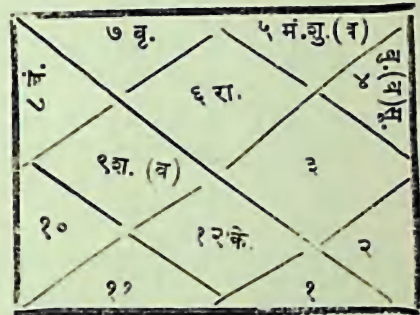 ७ वृ.
५ मं.शु.(व)
८ चं.
६ रा.
बु.(व)सू.
४
९श. (व)
३
१०
१२के.
२
११
१